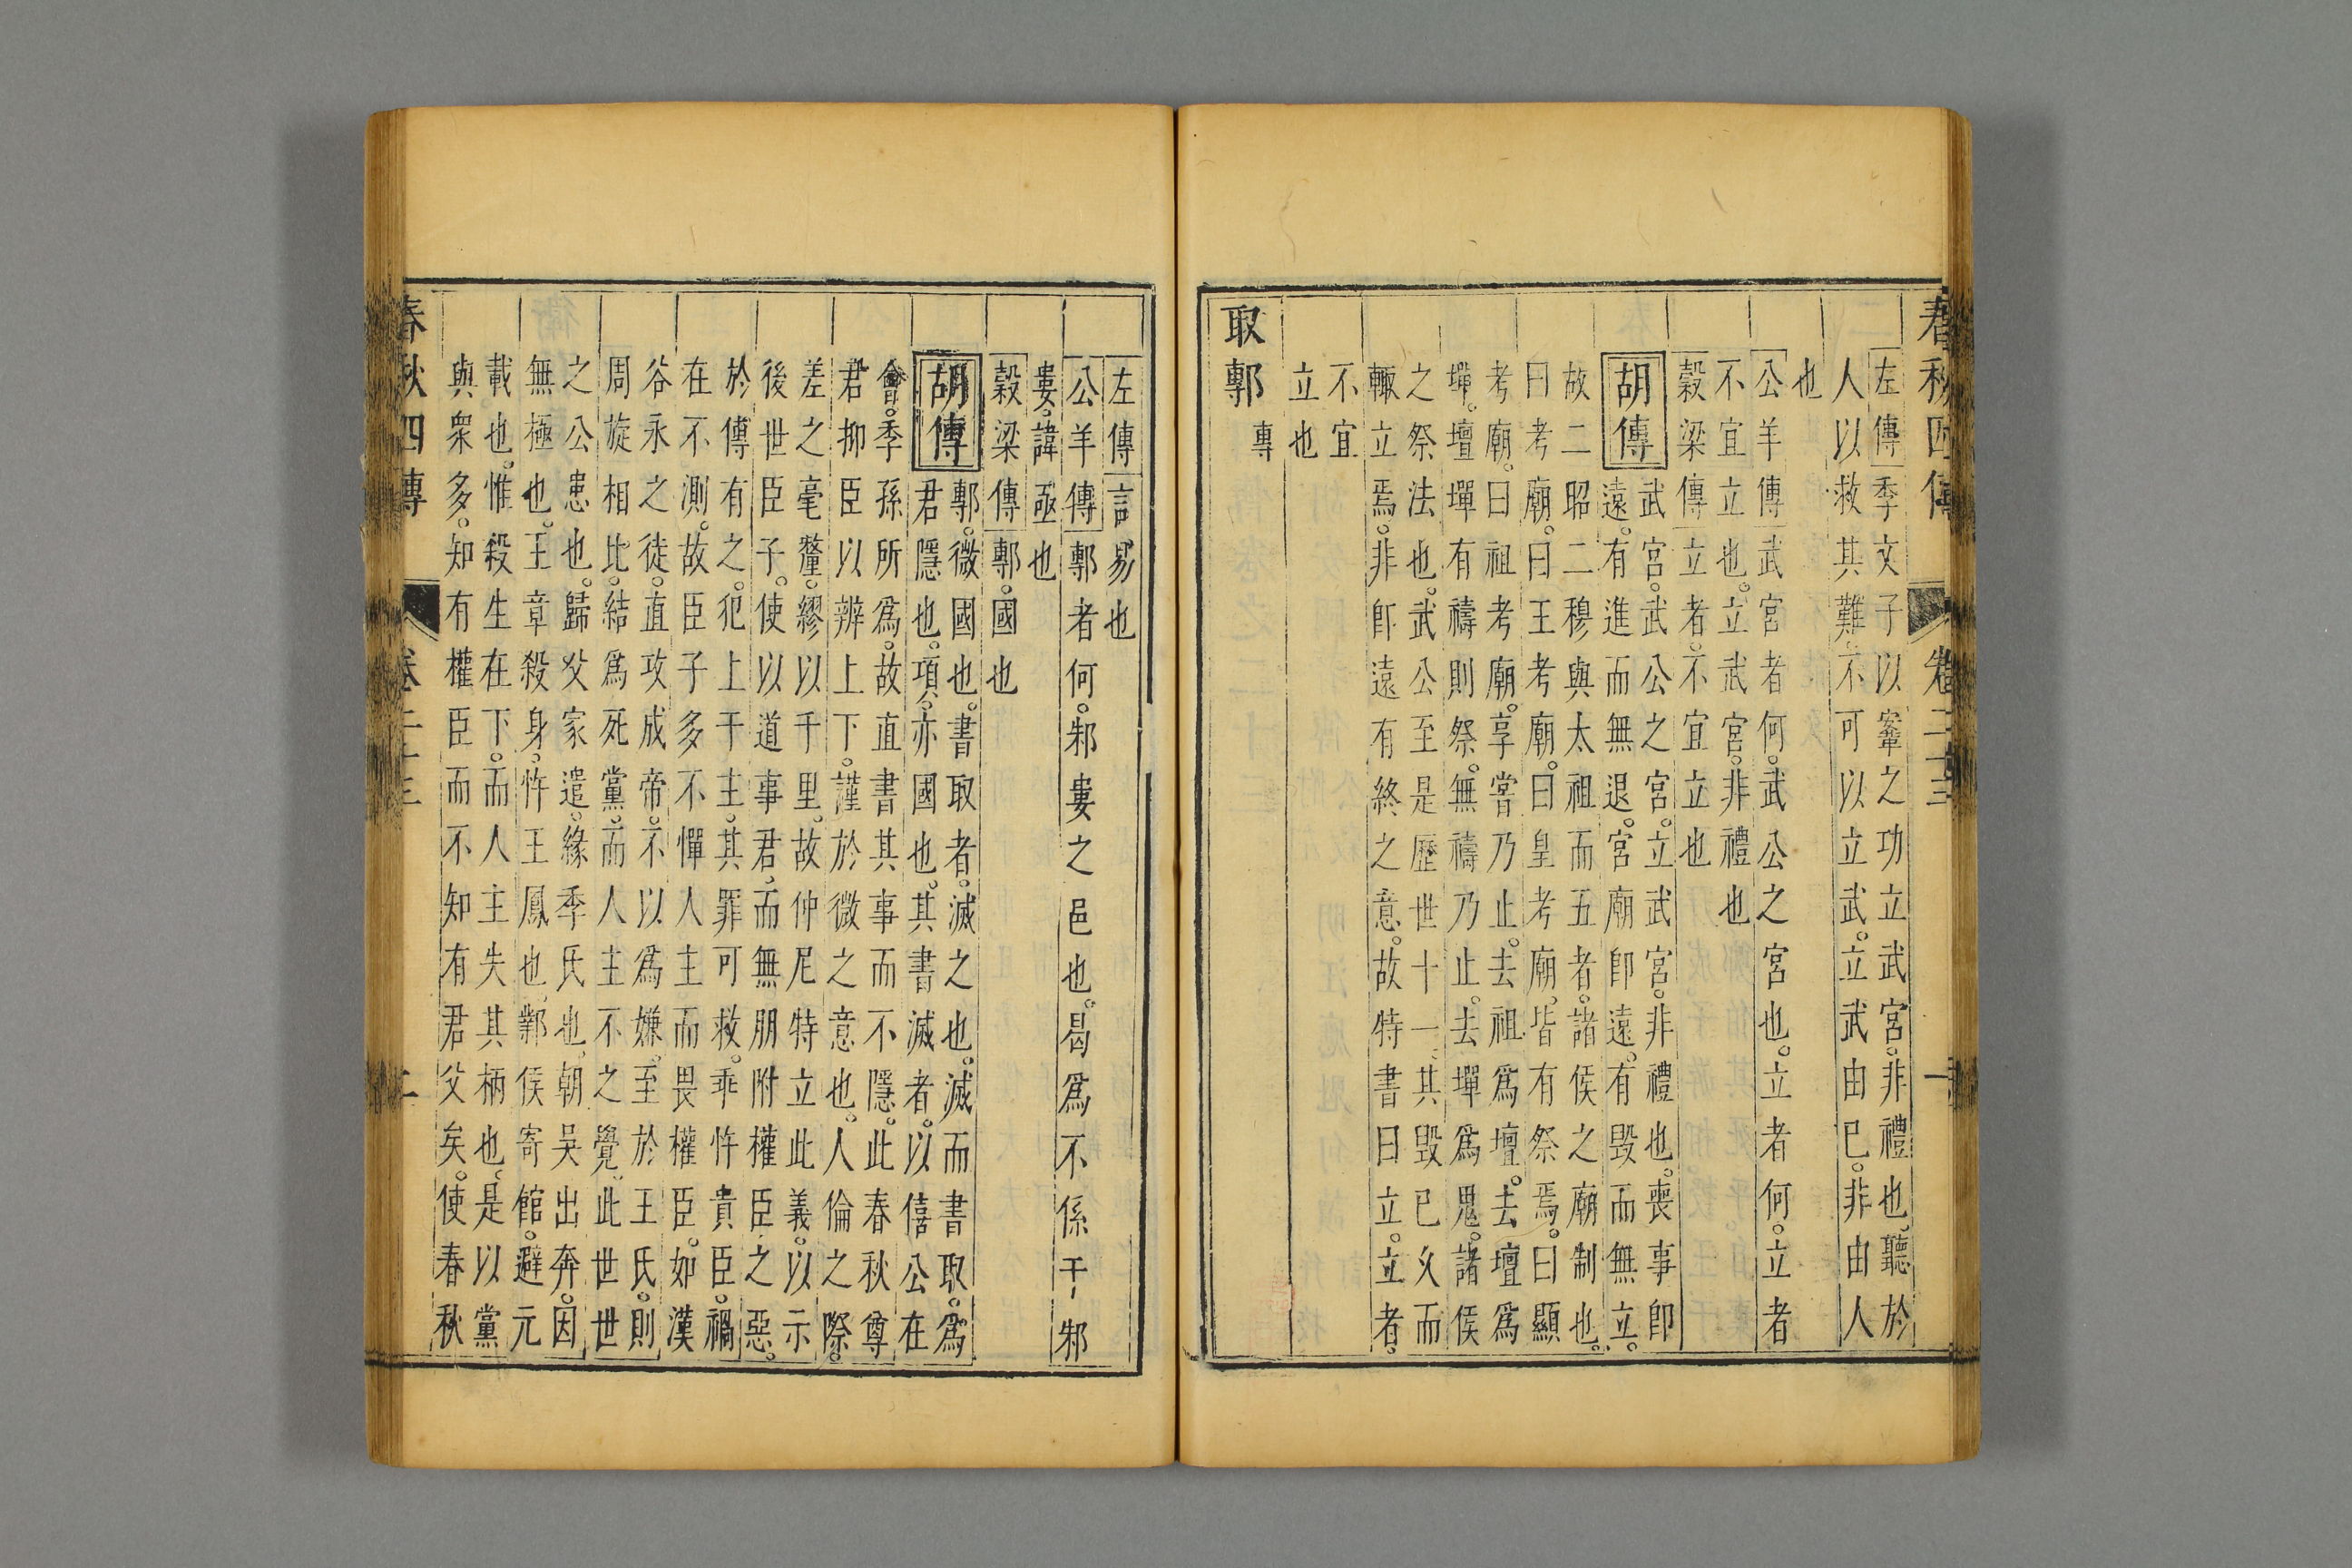 春秋四傳 卷二十三 一
左傳季文子以鞌之功立武宮。非禮也。聽於
人以救其難。不可以立武。立武由已。非由人
也
公羊傳武宮者何。武公之宮也。立者何。立者
不宜立也。立武宮。非禮也
穀梁傳立者。不宜立也
胡傳武宮。武公之宮。立武宮。非禮也。喪事卽
遠。有進而無退。宮廟卽遠。有毀而無立。
故二昭二穆與太祖而五者。諸侯之廟制也。
曰考廟。曰王考廟。曰皇考廟。皆有祭焉。曰顯
考廟。曰祖考廟。享嘗乃止。去祖爲壇。去壇爲
墠。壇墠有禱則祭。無禱乃止。去墠爲鬼。諸侯
之祭法也。武公至是歷世十一。其毀已久而
輒立焉。非卽遠有終之意。故特書曰立。立者。
不宜
立也
取鄟 專
左傳言易也
公羊傳鄟者何。邾婁之邑也。曷爲不係于邾
婁。諱亟也
穀梁傳鄟。國也
胡傳鄟。微國也。書取者。滅之也。滅而書取。爲
君隱也。項。亦國也。其書滅者。以僖公在
會。季孫所爲。故直書其事而不隱。此春秋尊
君抑臣以辨上下。謹於微之意也。人倫之際。
差之毫釐。繆以千里。故仲尼特立此義。以示
後世臣子。使以道事君。而無朋附權臣之惡。
於傳有之。犯上干主。其罪可救。乖忤貴臣。禍
在不測。故臣子多不憚人主而畏權臣。如漢
谷永之徒。直攻成帝。不以爲嫌。至於王氏。則
周旋相比。結爲死黨。而人主不之覺。此世世
之公患也。歸父家遣。緣季氏也。朝吳出奔。因
無極也。王章殺身。忤王鳳也。鄴侯寄館。避元
載也。惟殺生在下。而人主失其柄也。是以黨
與衆多。知有權臣而不知有君父矣。使春秋
春秋四傳 卷二十三 二